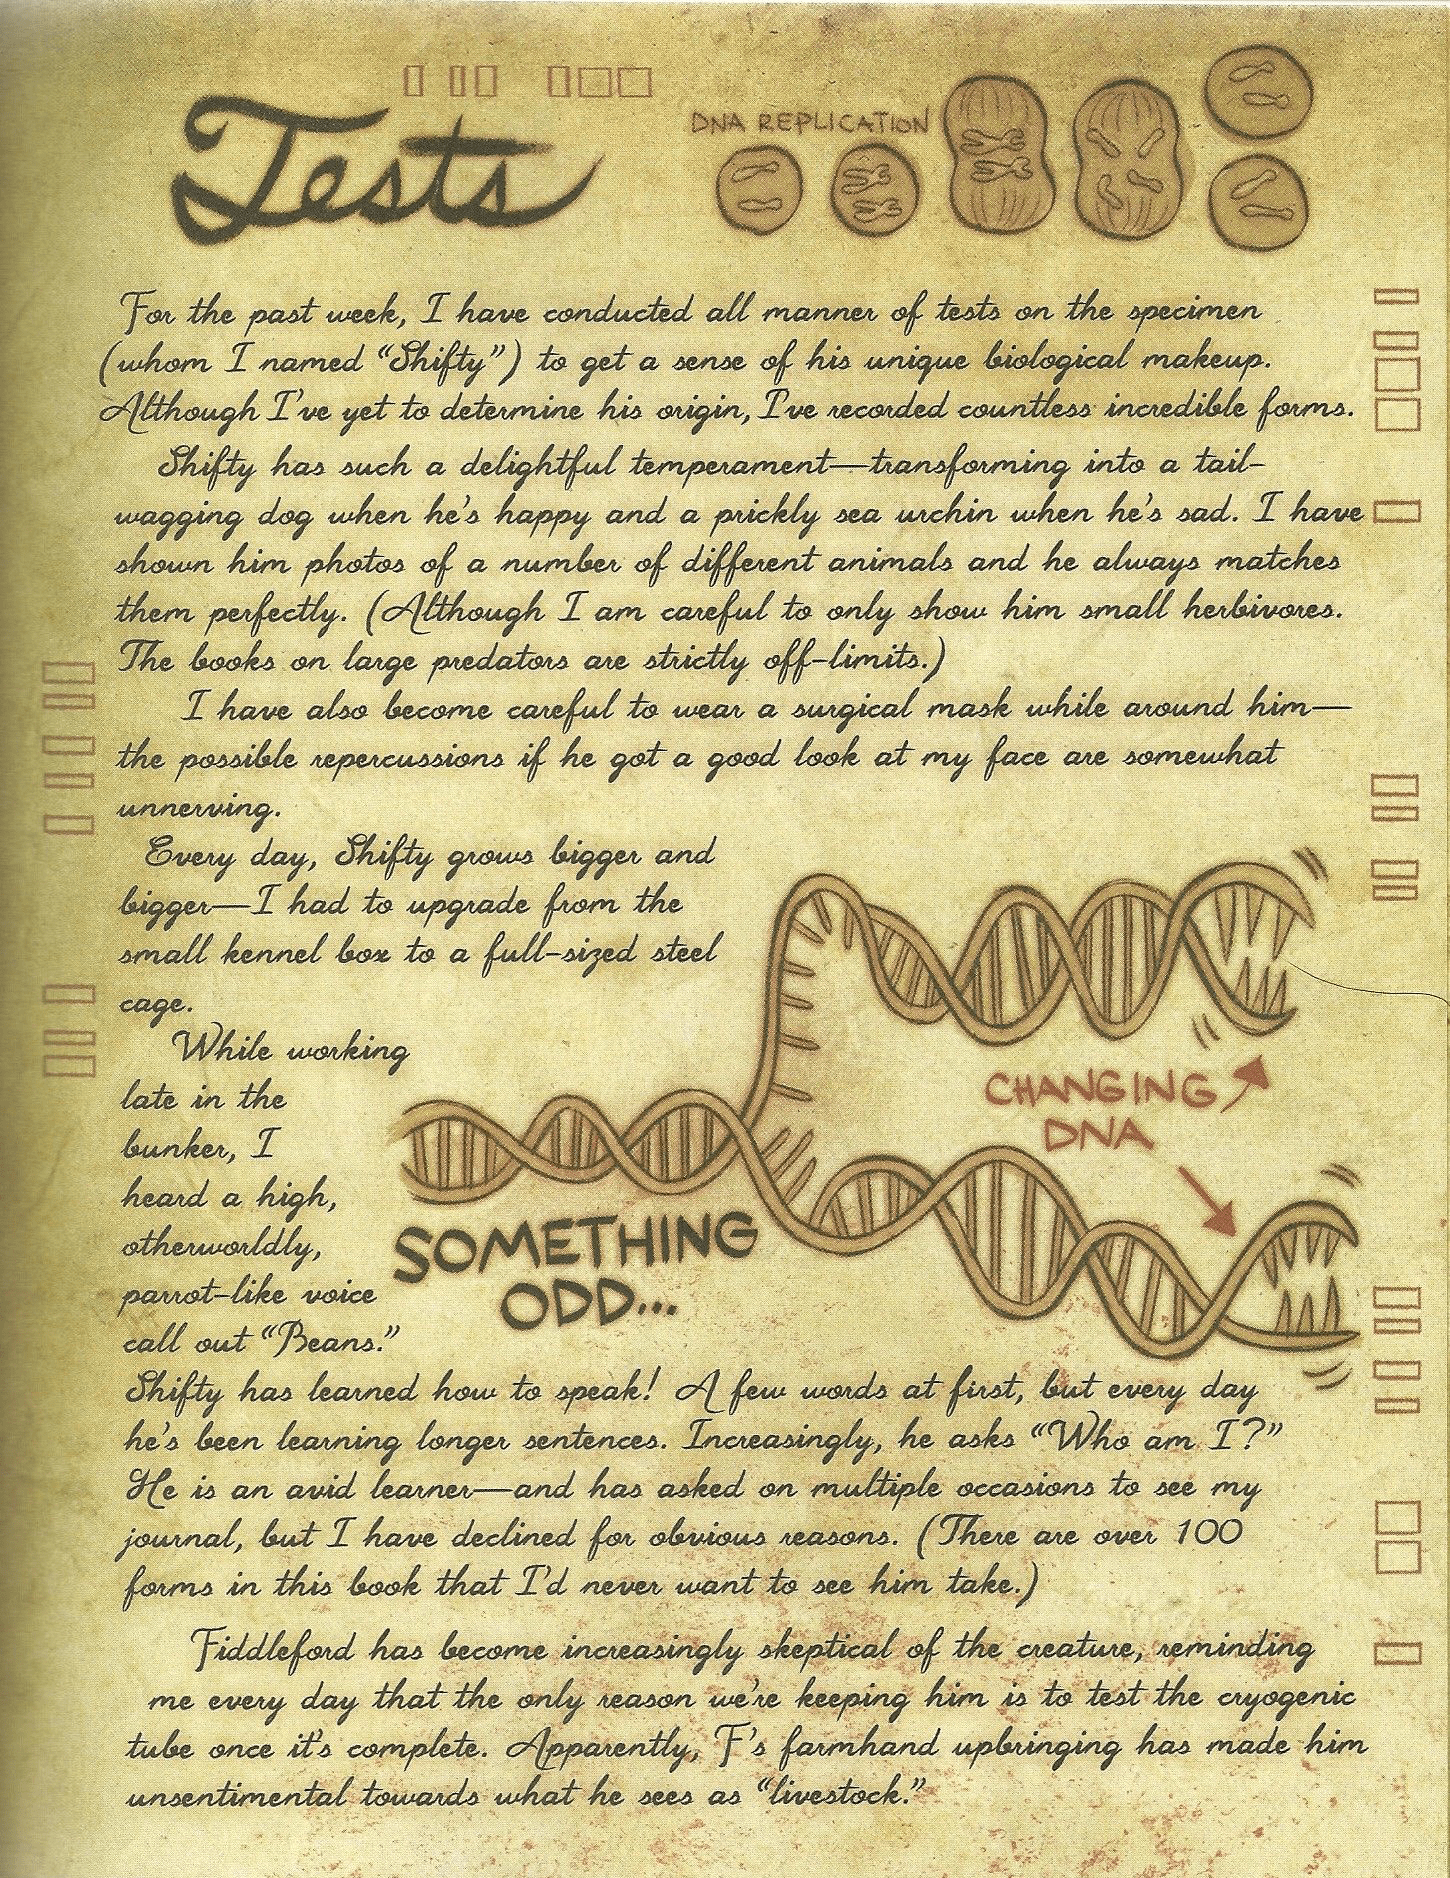 Tests
DNA REPLICATION
For the past week, I have conducted all manner of tests on the specimen
(whom I named “Shifty”) to get a sense of his unique biological makeup.
Although I've yet to determine his origin, I've recorded countless incredible forms.
Shifty has such a delightful temperament—transforming into a tail-
wagging dog when he's happy and a prickly sea urchin when he's sad. I have
shown him photos of a number of different animals and he always matches
them perfectly. (Although I am careful to only show him small herbivores.
The books on large predators are strictly off-limits.)
I have also become careful to wear a surgical mask while around him—
the possible repercussions if he got a good look at my face are somewhat
unnerving.
Every day, Shifty grows bigger and
bigger—I had to upgrade from the
small kennel box to a full-sized steel
cage.
While working
late in the
bunker, I
heard a high,
otherworldly,
parrot-like voice
call out “Beans.”
CHANGING
DNA
SOMETHING
ODD...
Shifty has learned how to speak! A few words at first, but every day
he's been learning longer sentences. Increasingly, he asks “Who am I?”
He is an avid learner—and has asked on multiple occasions to see my
journal, but I have declined for obvious reasons. (There are over 100
forms in this book that I'd never want to see him take.)
Fiddleford has become increasingly skeptical of the creature, reminding
me every day that the only reason we're keeping him is to test the cryogenic
tube once it's complete. Apparently, F's farmhand upbringing has made him
unsentimental towards what he sees as “livestock.”